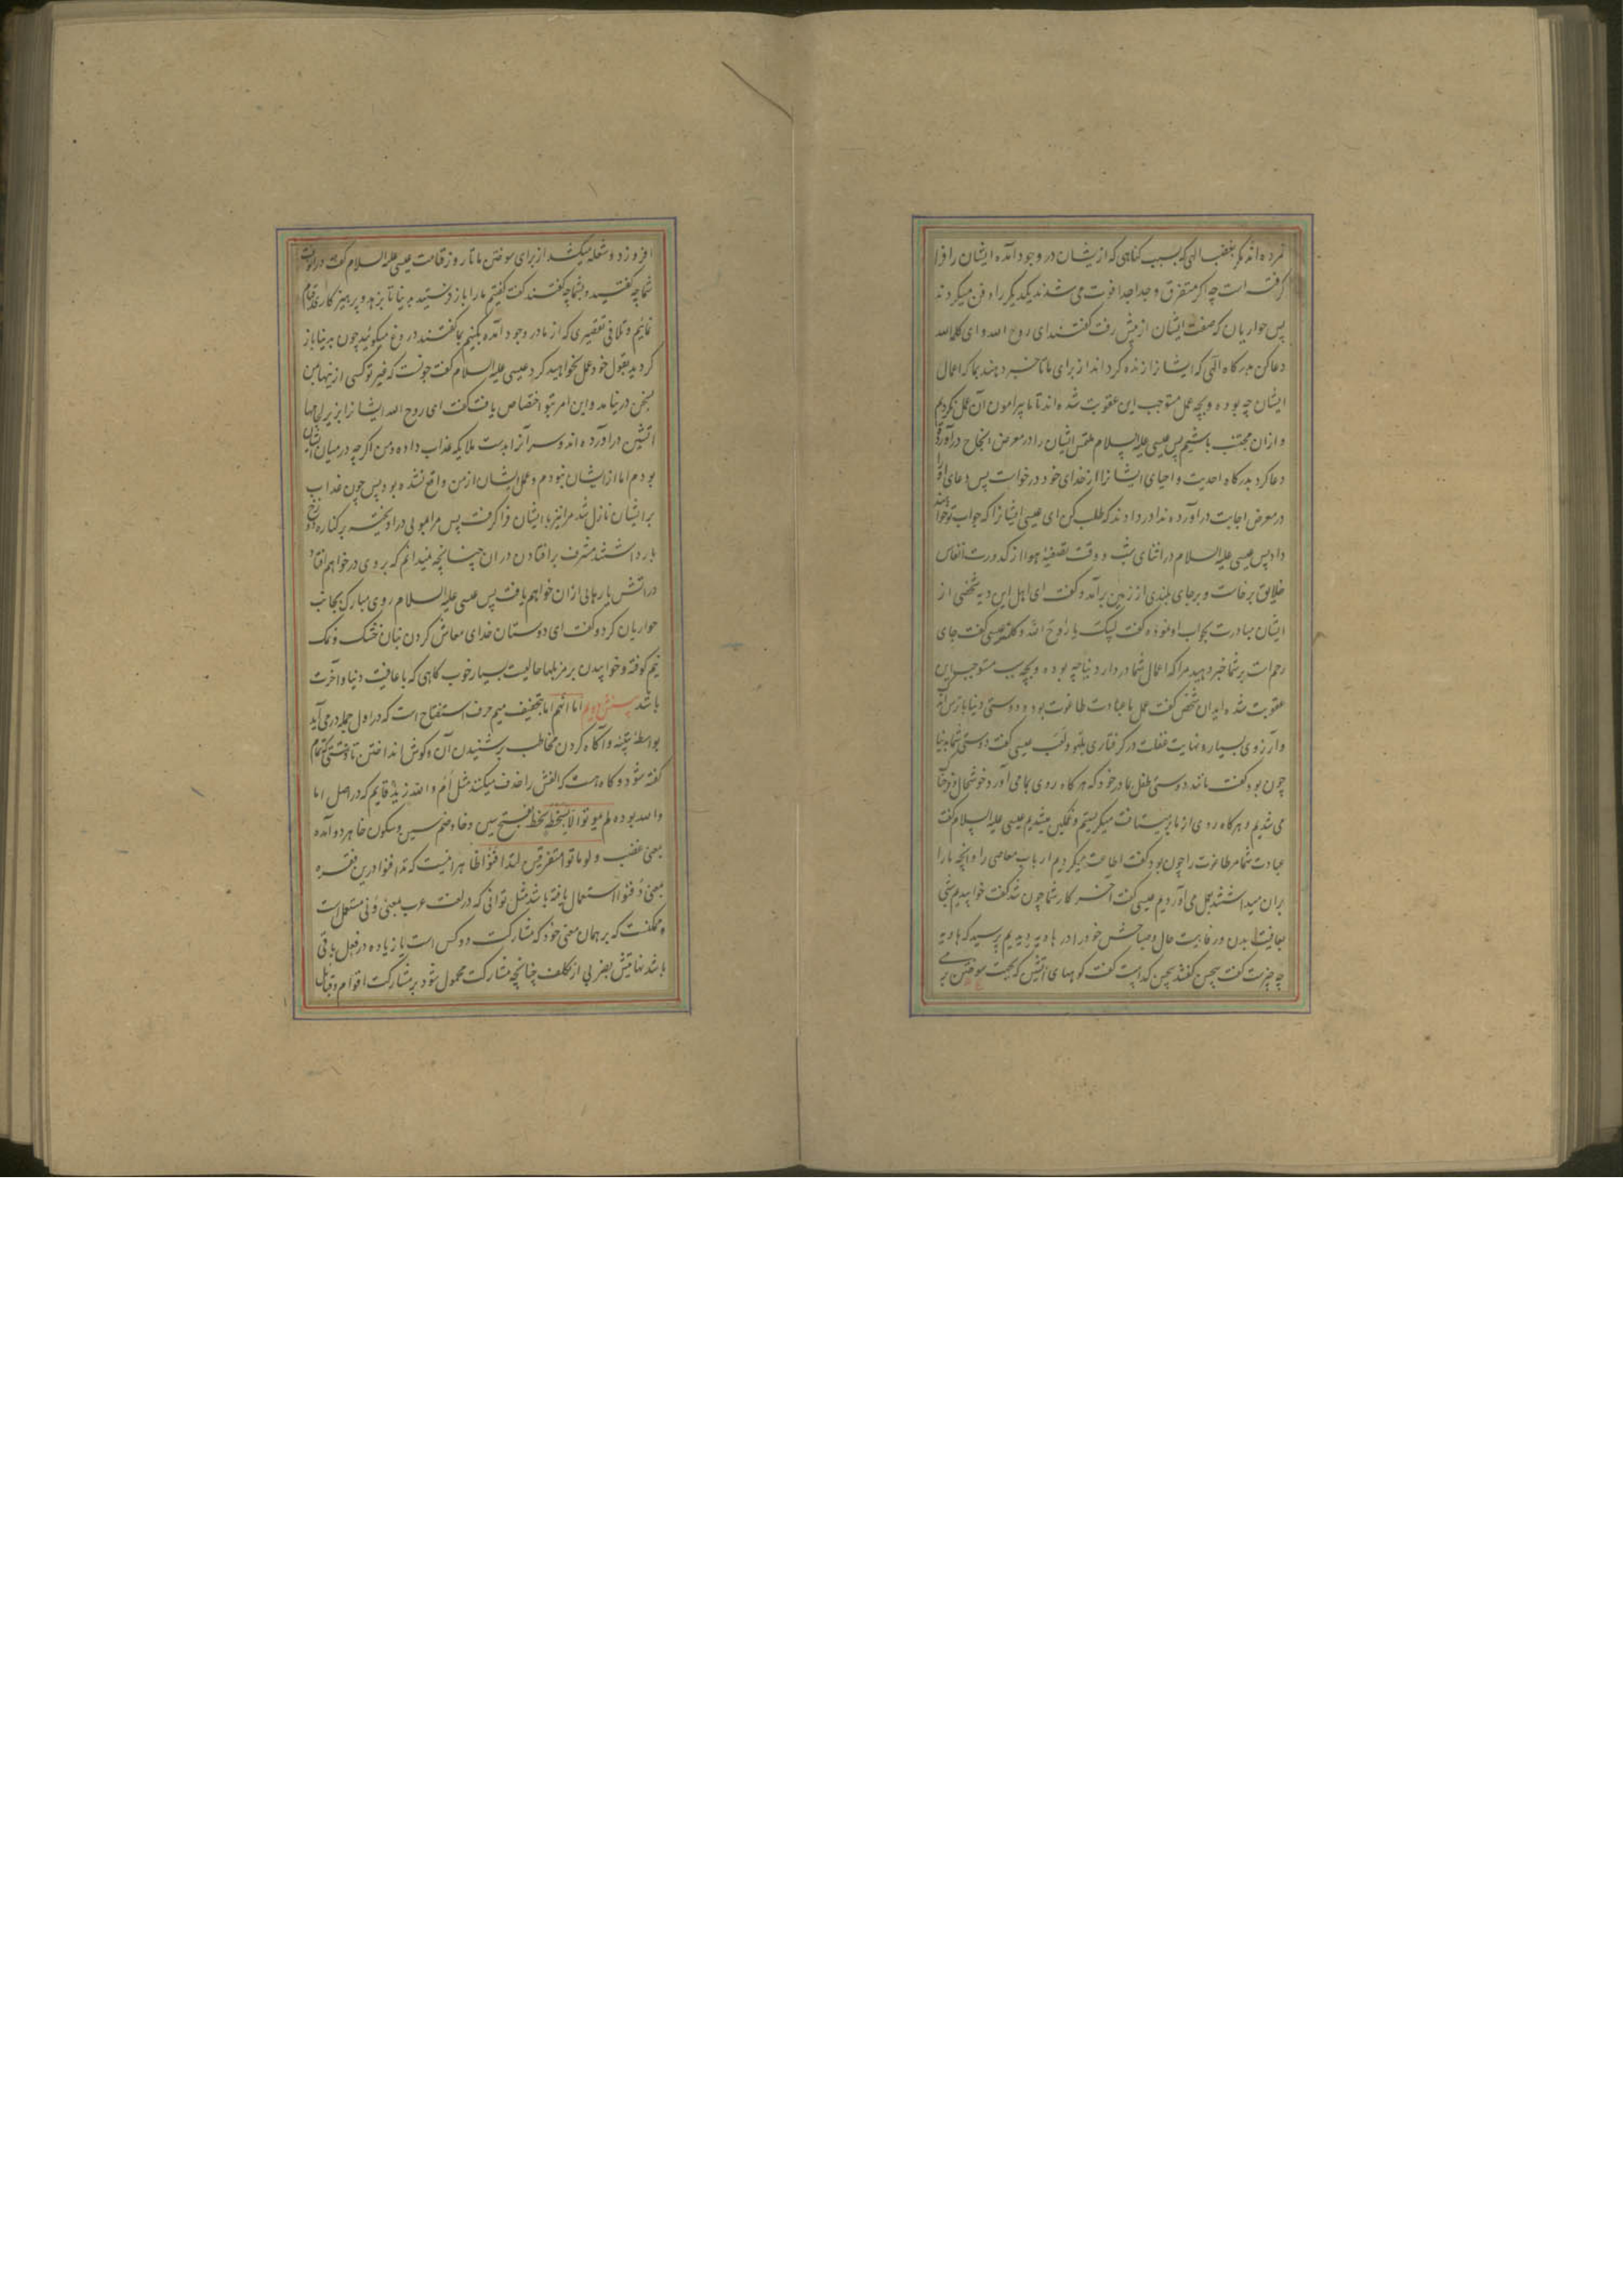 نمرده اند مگر بغضب الهی که بسبب گناهی که از یشان در وجود آمده ایشان را فرا
گرفته است چه اگر متفرق و جدا جدا فوت می شدند یکدیگر را دفن میکردند
پس حواریان که صفت ایشان از پیش رفت گفتند ای روح الله و ای کلمة الله
دعا کن بدرگاه الهی که ایشانرا زنده گرداند از برای ما تا خبر دهند بما که اعمال
ایشان چه بوده و بچه عمل مستوجب این عقوبت شده اند تا ما پیرامون آن عمل نگردیم
و ازان مجتنب باشیم پس عیسی علیه السلام ملتمس ایشان را در معرض انجاح درآورده
دعا کرد بدرگاه احدیت و احیای ایشانرا از خدای خود درخواست پس دعای او را
در معرض اجابت درآورده ندا در دادند که طلب کن ای عیسی ایشانرا که جواب تو خواهند
داد پس عیسی علیه السلام در اثنای شب و وقت تصفیهٔ هوا از کدورت انفاس
خلایق برخاست و بر جای بلندی از زمین برآمد و گفت ای اهل این دیه شخصی از
ایشان مبادرت بجواب او نموده گفت لبیک یا روح الله و کلمته عیسی گفت جای
رحم است بر شما خبر دهید مرا که اعمال شما در دار دنیا چه بوده و بچه سبب مستوجب این
عقوبت شده اید ان شخص گفت عمل ما عبادت طاغوت بوده و دوستی دنیا با ترس اندک
و آرزوی بسیار و نهایت غفلت در گرفتاری بلهو و لعب عیسی گفت دوستی شما بدنیا
چون بود گفت مانند دوستی طفل بمادر خود که هر گاه روی بما می آورد خوشحال و فرحناک
می شدیم و هرگاه روی از ما بر میتافت میگریستیم و غمگین میشدیم عیسی علیه السلام گفت
عبادت شما مر طاغوت را چون بود گفت اطاعت میکردیم ارباب معاصی را و آنچه ما را
بران میداشتند بعمل می آوردیم عیسی گفت آخر کار شما چون شد گفت خوابیدیم شبی
بعافیت بدن و رفاهیت حال و صباحش خود را در هاویه دیدیم پرسید که هاویه
چه چیزست گفت سجین گفتند سجین کدام است گفت کوههای آتش که بجهت سوختن بر می
افروزد و شعله میکشد از برای سوختن ما تا روز قیامت عیسی علیه السلام گفت دران وقت
شما چه گفتید و بشما چه گفتند گفت گفتیم ما را باز فرستید بدنیا تا بزهد و پرهیزکاری قیام
نمائیم و تلافی تقصیری که از ما در وجود آمده بکنیم بما گفتند دروغ میگوئید چون بدنیا باز
گردید بقول خود عمل نخواهید کرد عیسی علیه السلام گفت چونست که غیر تو کسی از ینها بمن
بسخن درنیامد و این امر بتو اختصاص یافت گفت ای روح الله ایشانرا بزیر لجامها
آتشین درآورده اند و سر آنرا بدست ملایکه عذاب داده و من اگر چه در میان ایشان
بودم اما از ایشان نبودم و عمل ایشان از من واقع نشده بود پس چون عذاب
بر ایشان نازل شد مرا نیز با ایشان فرا گرفت پس مرا بمویی درآویخته بر کناره دوزخ
بازداشتند مشرف بر افتادن دران چنانچه نمیدانم که بروی در خواهم افتاد
در آتش یا رهایی ازان خواهم یافت پس عیسی علیه السلام روی مبارک بجانب
حواریان کرد و گفت ای دوستان خدای معاش کردن بنان خشک و نمک
نیم کوفته و خوابیدن بر مزبلها حالیست بسیار خوب گاهی که با عافیت دنیا و آخرت
باشد اما انهم اما بتخفیف میم حرف استفتاح است که در اول جمله در می آید
بواسطهٔ تنبیه و آگاه کردن مخاطب بر شنیدن آن و گوش انداختن تا وقتی که تمام
گفته شود و گاه هست که الفش را حذف میکنند مثل أم والله زید قایم که در اصل اما
والله بوده لم یموتوا الا بسخطة سخط بفتح سین و خا و ضم سین و سکون خا هر دو آمده
بمعنی غضب و لو ماتوا متفرقین لتدافنوا ظاهرا نیست که تدافنوا درین فقره
بمعنی دفنوا استعمال یافته باشد مثل توانی که در لغت عرب بمعنی ونی مستعمل است
و ممکنست که بر همان معنی خود که مشارکت دو کس است یا زیاده در فعل باقی
باشد نهایتش بضربی از تکلف چنانچه مشارکت محمول شود بر مشارکت اقوام و قبایل